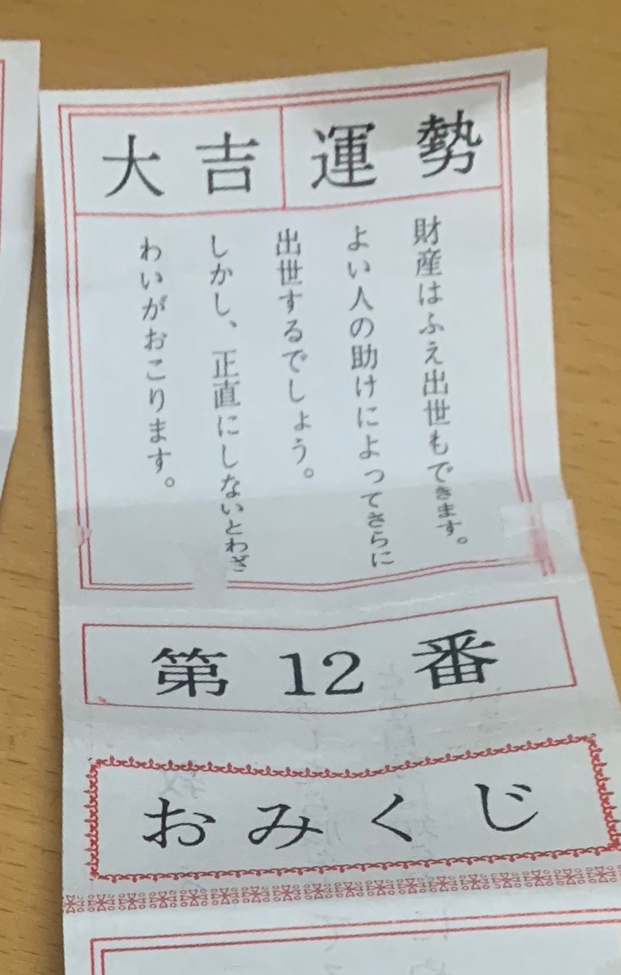 大吉 運勢
財産はふえ出世もできます。
よい人の助けによってさらに
出世するでしょう。
しかし、正直にしないとわざ
わいがおこります。
第12番
おみくじ